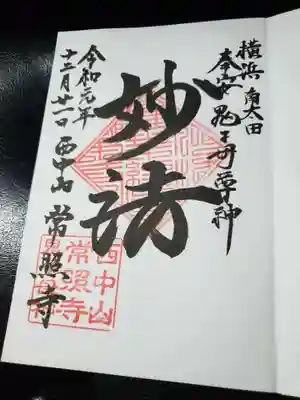 横浜南太田
奉安鬼子母尊神
妙法
令和元年
十二月廿一日
西中山
常照寺
西中山
常照寺